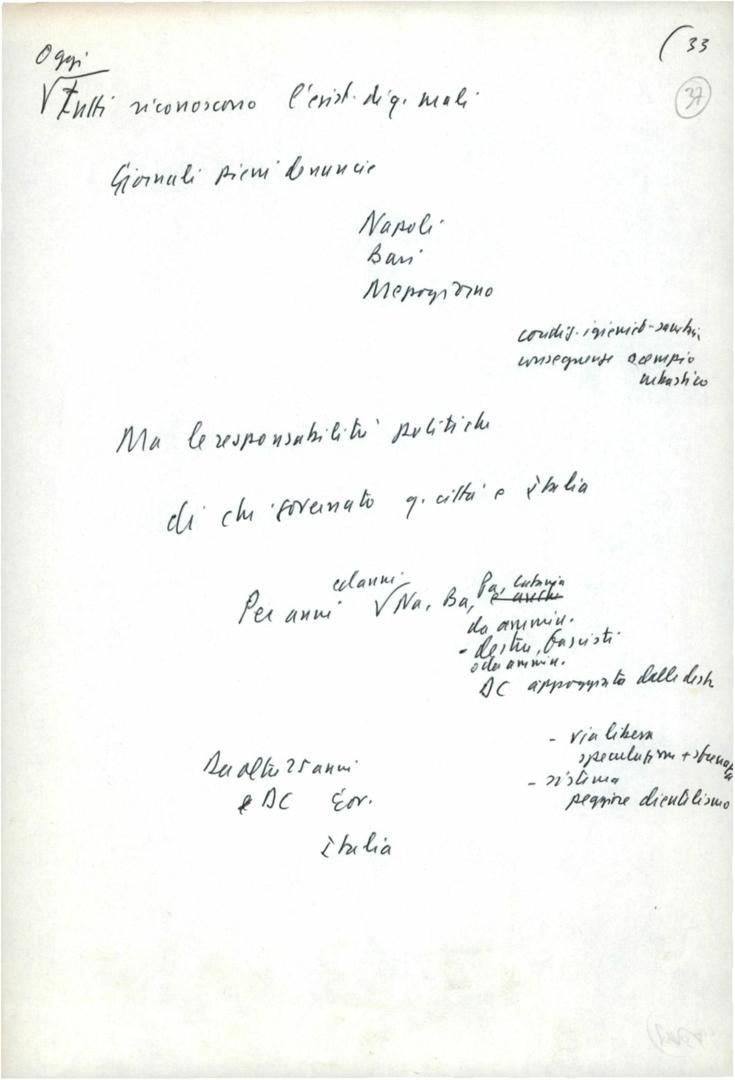 (33
37
Oggi
√ Tutti riconoscono l'esist. di q. mali
Giornali pieni denuncie
Napoli
Bari
Mezzogiorno
condiz. igienico-sanitarie
conseguenze scempio
urbanistico
Ma le responsabilità politiche
di chi governato q. città e Italia
ed anni
Per anni √ Na, Ba, Pa, Catania
e anche
da ammin.
- destra, fascisti
o da ammin.
DC appoggiata dalle destre
- via libera
speculazione + sfrenata
- sistema
peggiore clientelismo
Da oltre 25 anni
e DC gov.
Italia